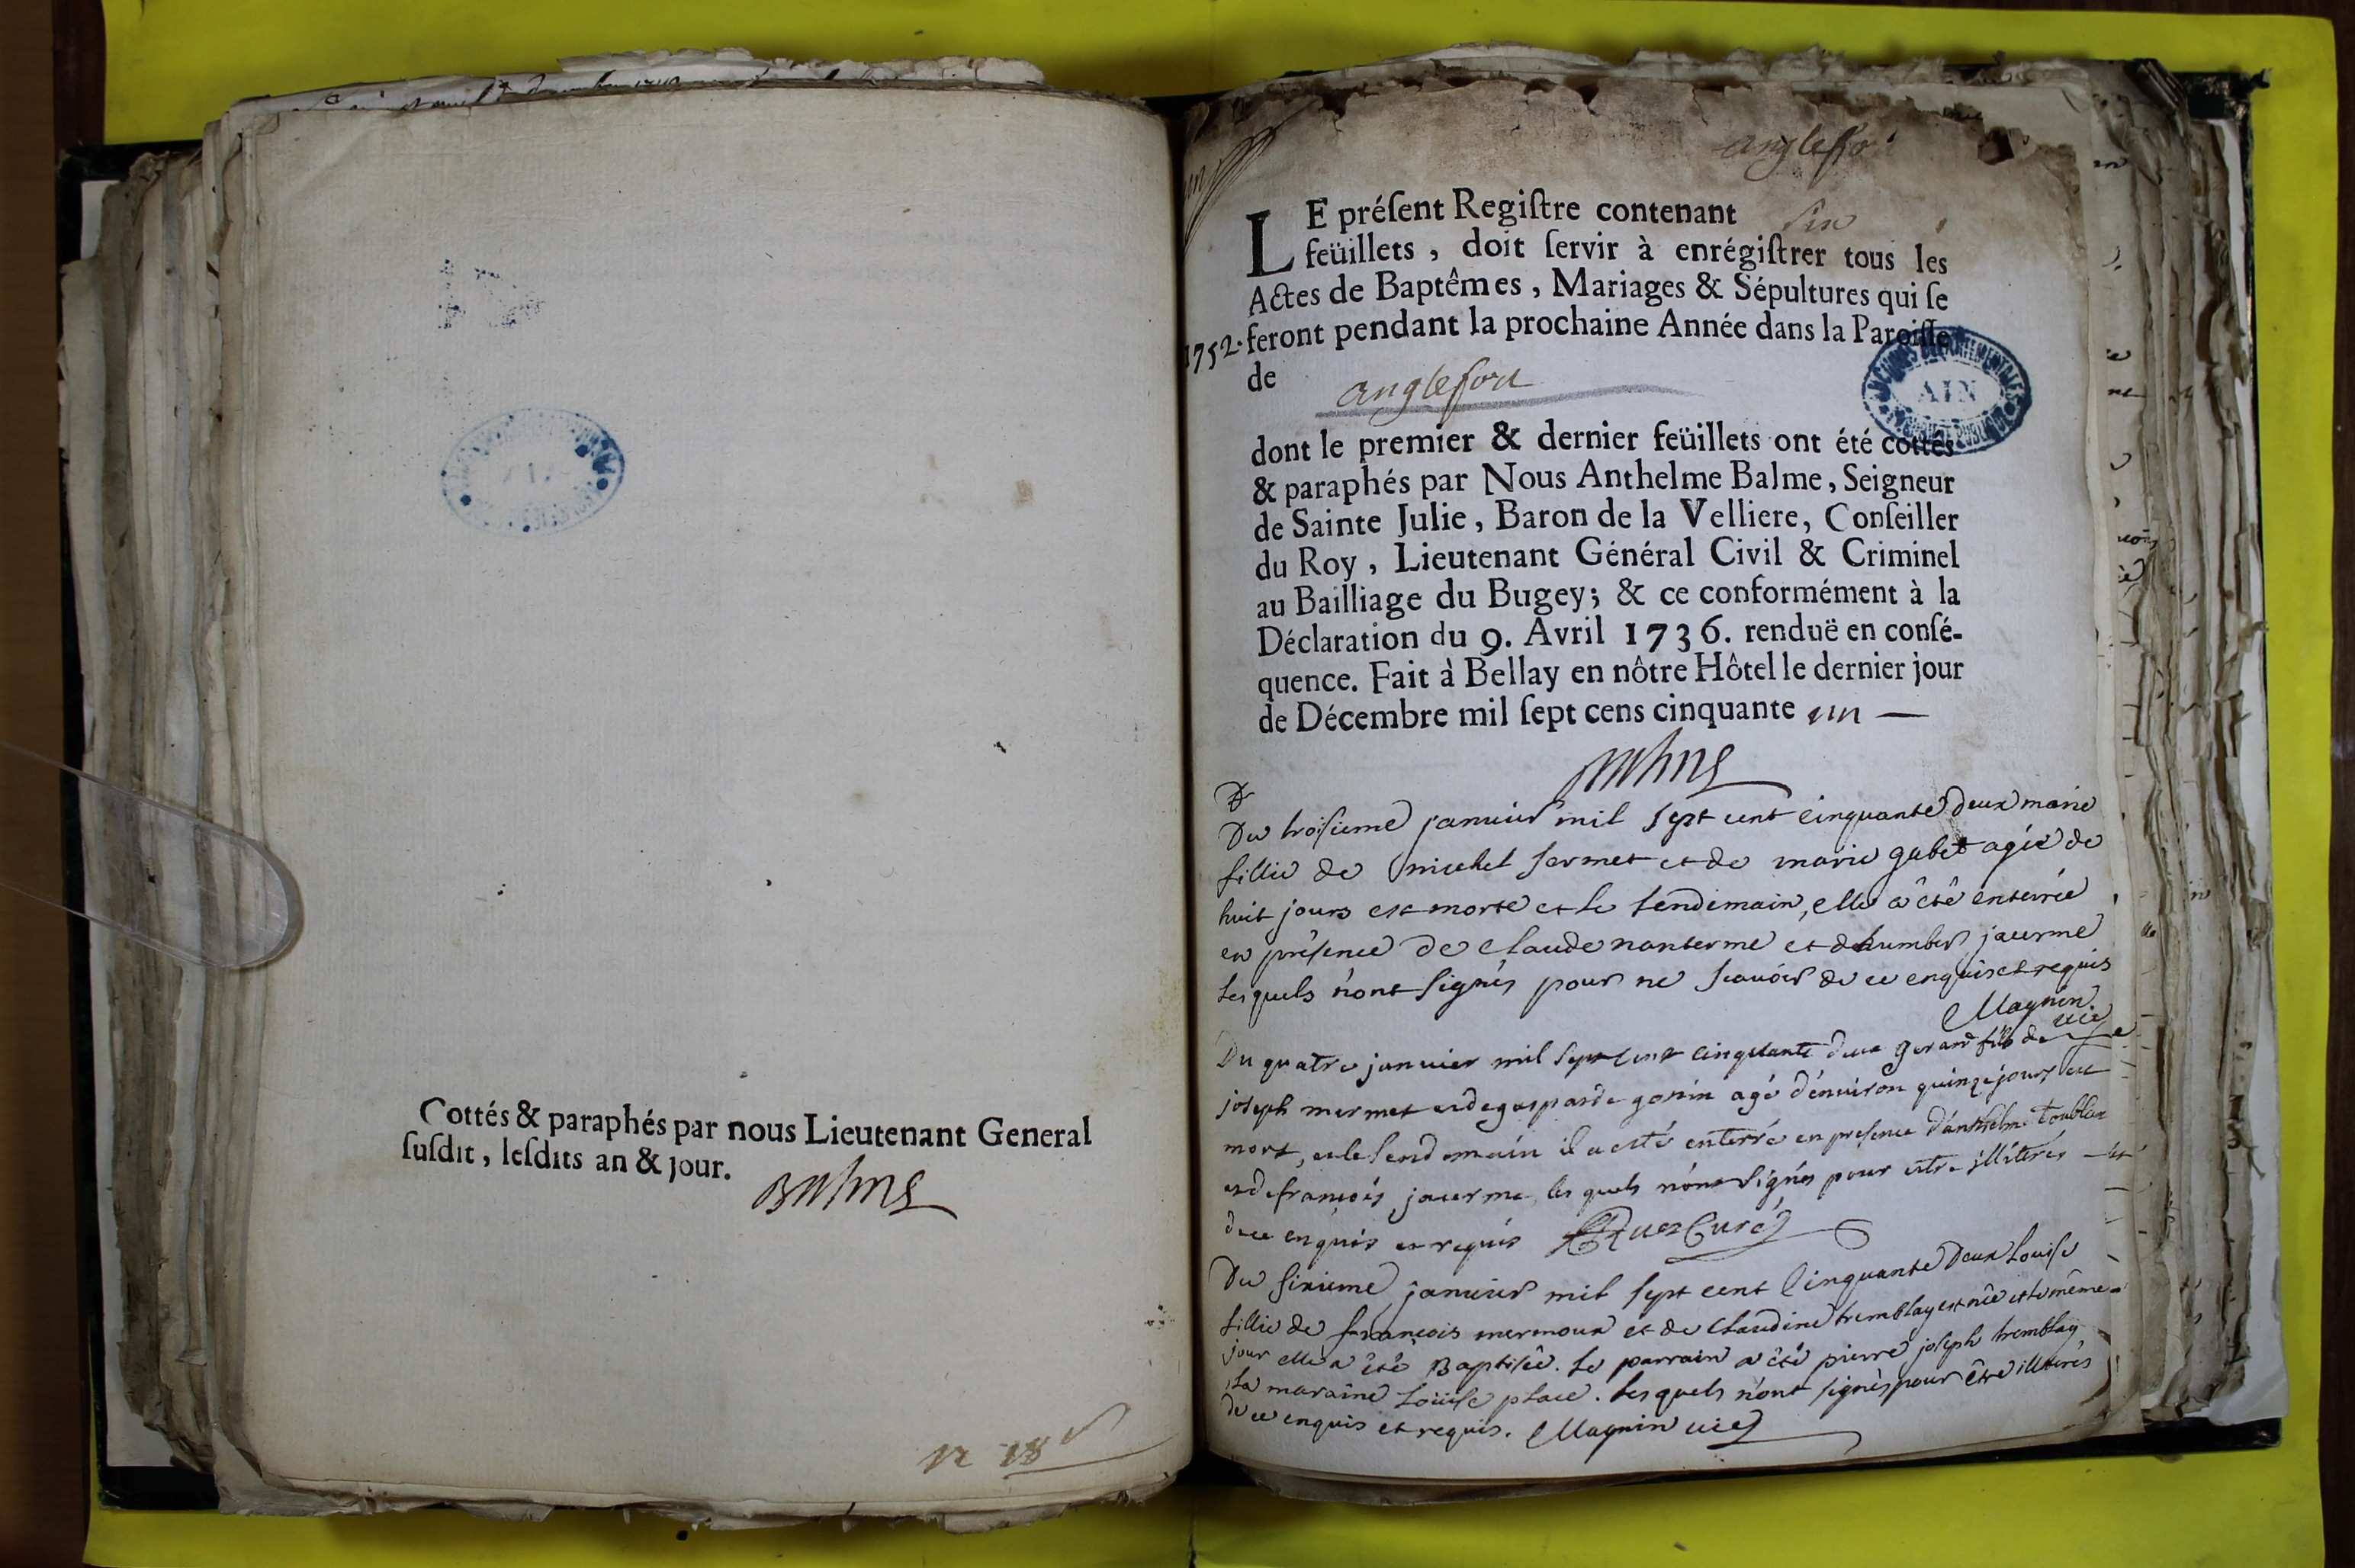 Cottés & paraphés par nous Lieutenant General
ſuſdit, leſdits an & jour.
Balme
anglefo
LE préſent Regiſtre contenant six
feüillets, doit ſervir à enrégiſtrer tous les
Actes de Baptêmes, Mariages & Sépultures qui ſe
1752. feront pendant la prochaine Année dans la Paroiſſe
de anglefort
dont le premier & dernier feüillets ont été cottés
& paraphés par Nous Anthelme Balme, Seigneur
de Sainte Julie, Baron de la Velliere, Conſeiller
du Roy, Lieutenant Général Civil & Criminel
au Bailliage du Bugey; & ce conformément à la
Déclaration du 9. Avril 1736. renduë en conſé-
quence. Fait à Bellay en nôtre Hôtel le dernier jour
de Décembre mil ſept cens cinquante un —
Balme
AIN
Du troisieme janvier mil sept cent cinquante deux marie
fillie de michel sermet et de marie gubet agée de
huit jours est morte et le lendemain, elle a êtê enterrée
en présence de Claude nanterme et dhumber jacerme
lesquels n'ont signés pour ne scavoir de ce enquis et requis
Magnin vic
Du quatre janvier mil sept cent cinquante deux gerard fils de
joseph mermet et de gasparde gonin agé d'environ quinze jours est
mort, et le lendemain il a esté enterré en presence d'anthelme Toublan
et de francois jacerme, les quels n'ont signés pour estre illiterés
de ce enquis et requis Curé
Du sixieme janvier mil sept cent Cinquante Deux Louise
fillie de francois mermoux et de Claudine tremblay est née et le même
jour elle a êtê Baptisée. Le parrain a êtê pierre joseph tremblay
La maraine Loüise place. Lesquels n'ont signés pour être illiterés
de ce enquis et requis. Magnin vic